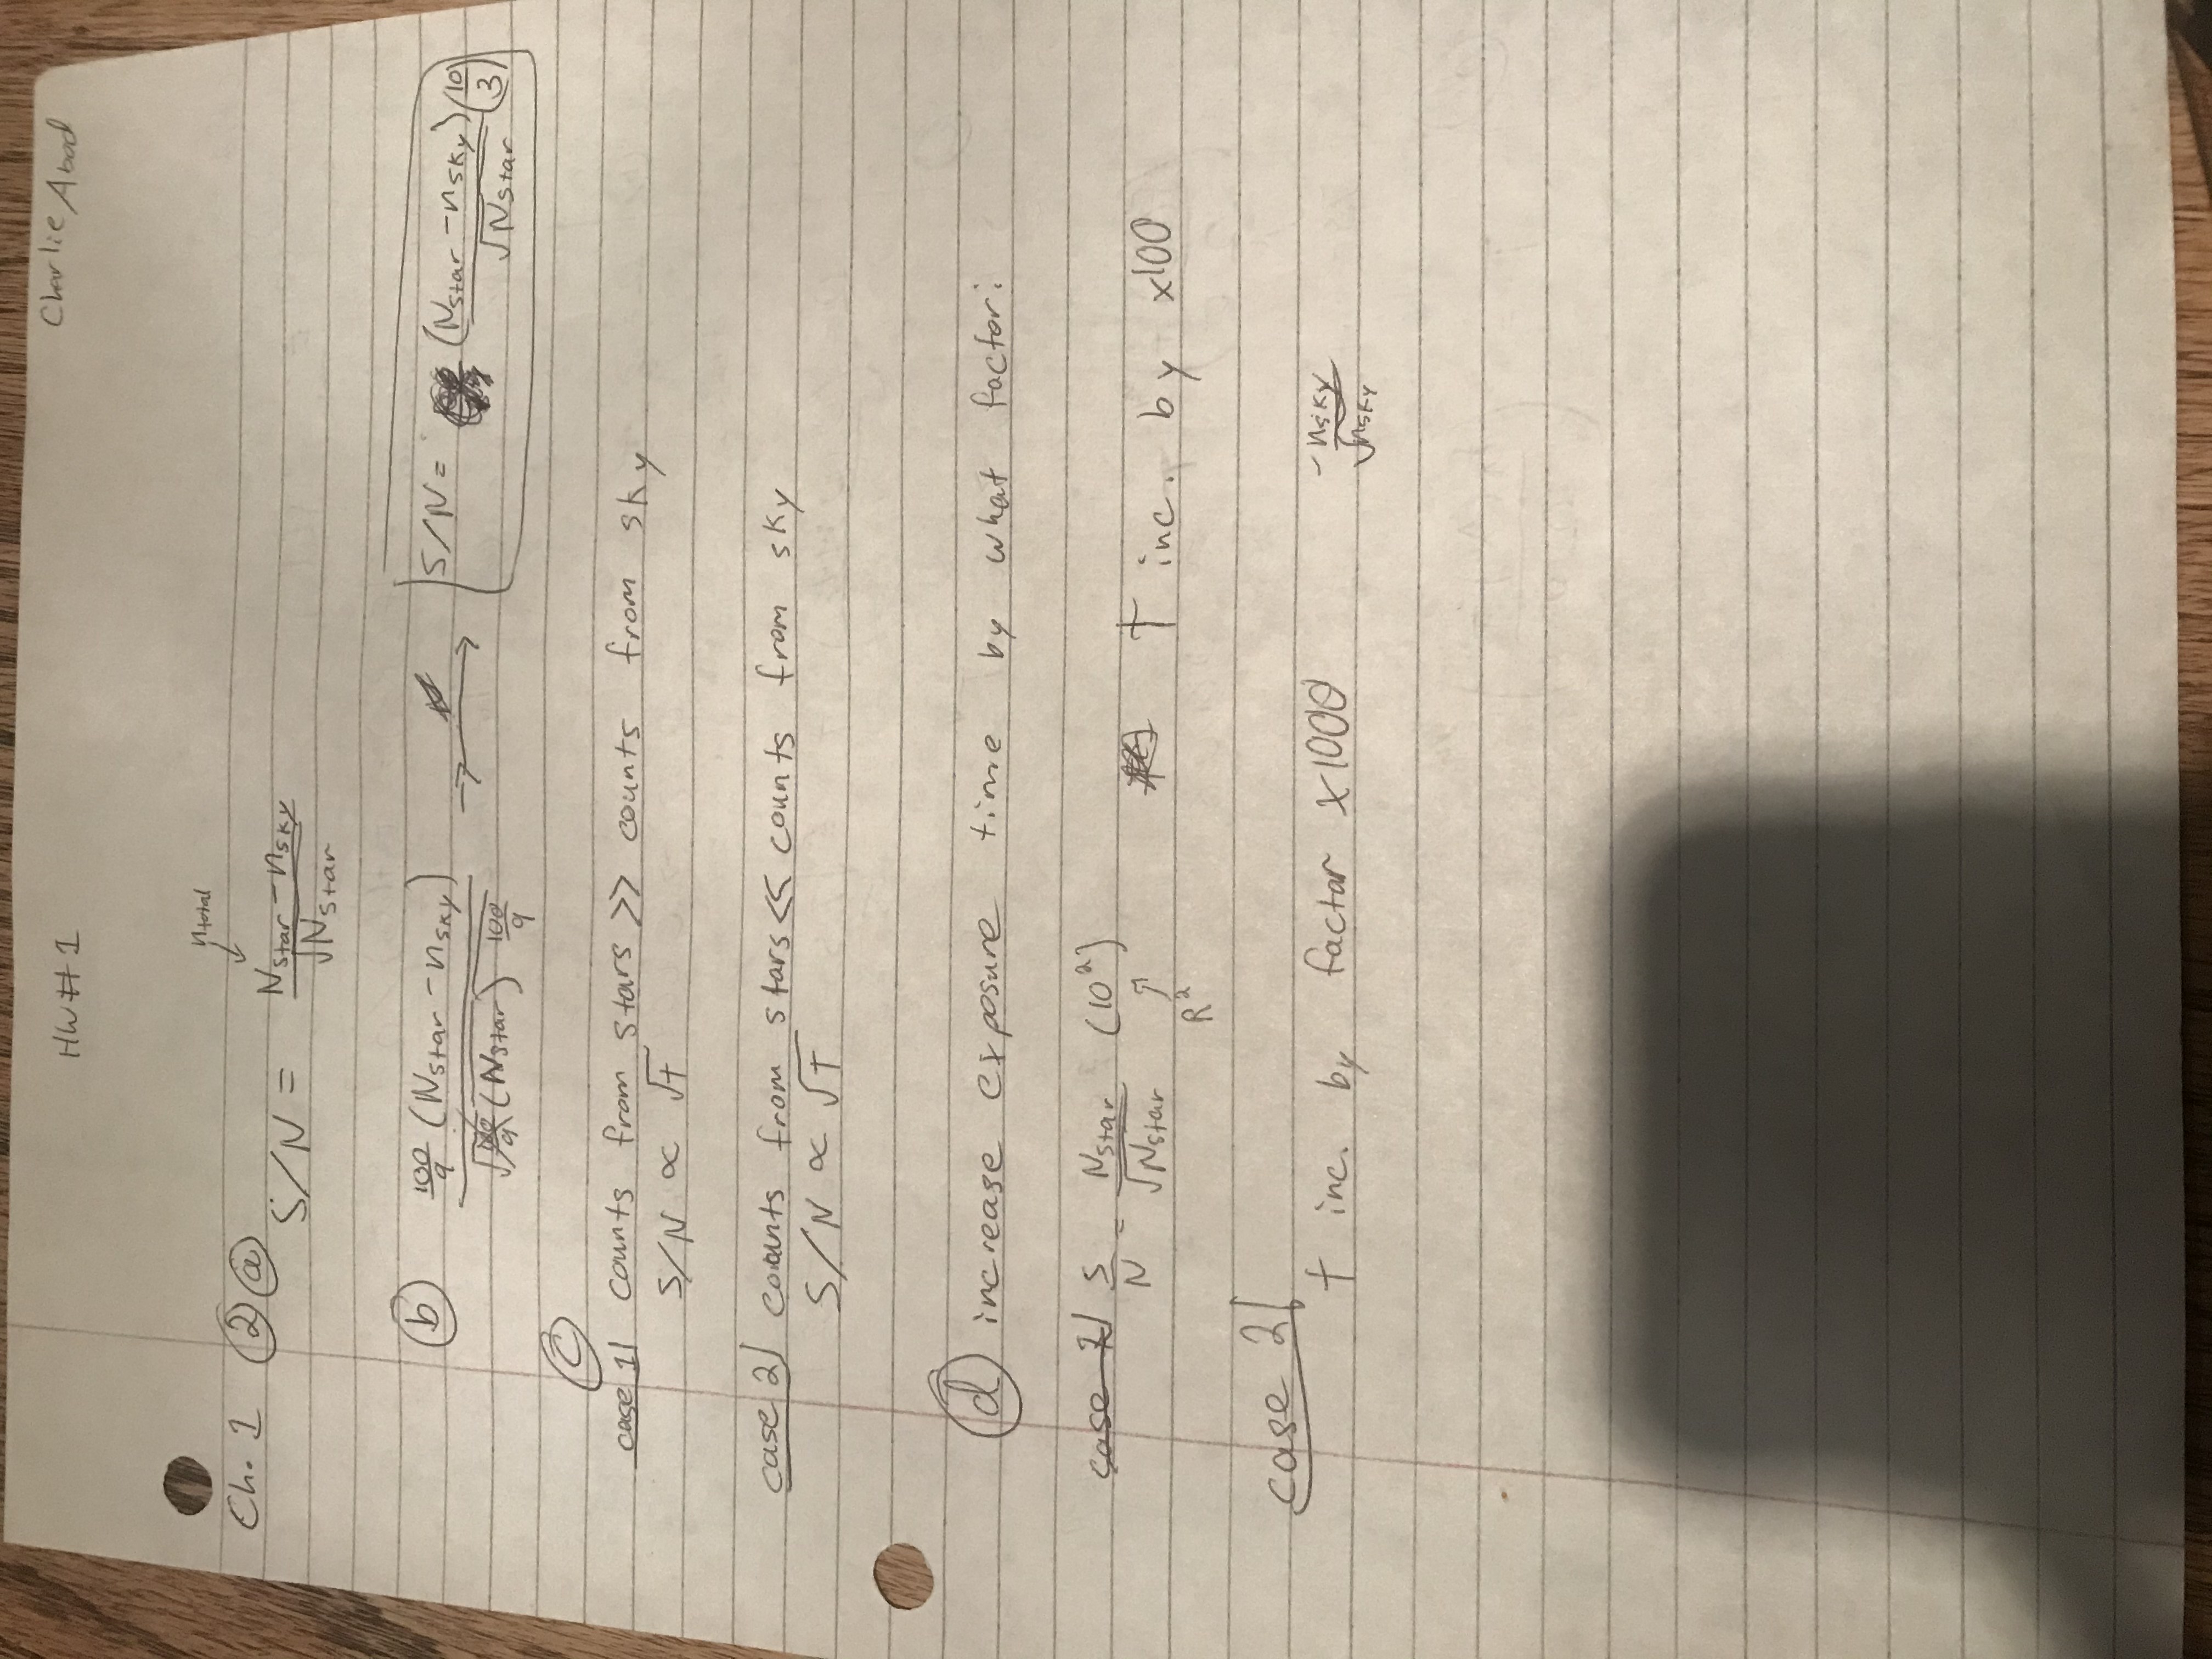 HW#1
Charlie Abod
n_total
↓
Ch. 1 ② ⓐ S/N = (N_star - n_sky) / √N_star
ⓑ 100/9 (N_star - n_sky) / √((N_star) 100/9) → → S/N = (N_star - n_sky) / √N_star (10/3)
ⓒ
case 1| counts from stars >> counts from sky
S/N ∝ √t
case 2| counts from stars << counts from sky
S/N ∝ √t
ⓓ increase exposure time by what factor:
case 1| S/N = N_star / √N_star (10²) t inc. by x100
↗
R²
case 2|
t inc. by factor x1000 -n_sky / √n_sky